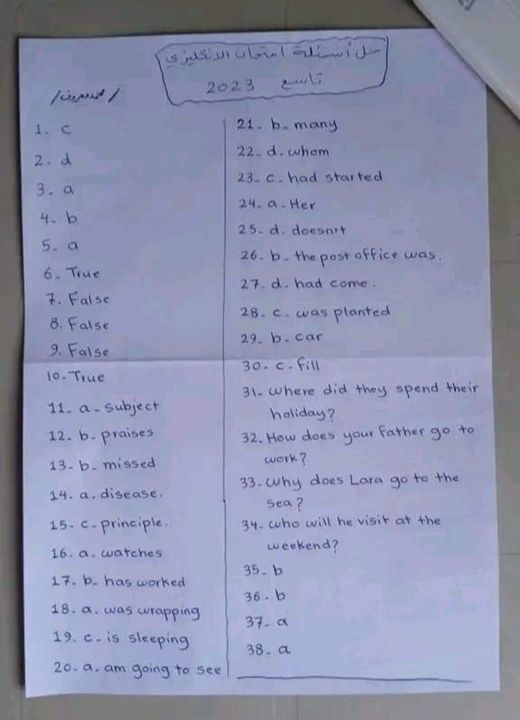 حل أسئلة امتحان الانكليزي
تاسع 2023
1. c
2. d
3. a
4. b
5. a
6. True
7. False
8. False
9. False
10. True
11. a - subject
12. b. praises
13. b. missed
14. a. disease.
15. c. principle.
16. a. watches
17. b. has worked
18. a. was wrapping
19. c. is sleeping
20. a. am going to see
21. b. many
22. d. whom
23. c. had started
24. a. Her
25. d. doesn't
26. b. the post office was.
27. d. had come.
28. c. was planted
29. b. car
30. c. fill
31. where did they spend their
holiday?
32. How does your father go to
work?
33. why does Lara go to the
sea?
34. who will he visit at the
weekend?
35. b
36. b
37. a
38. a